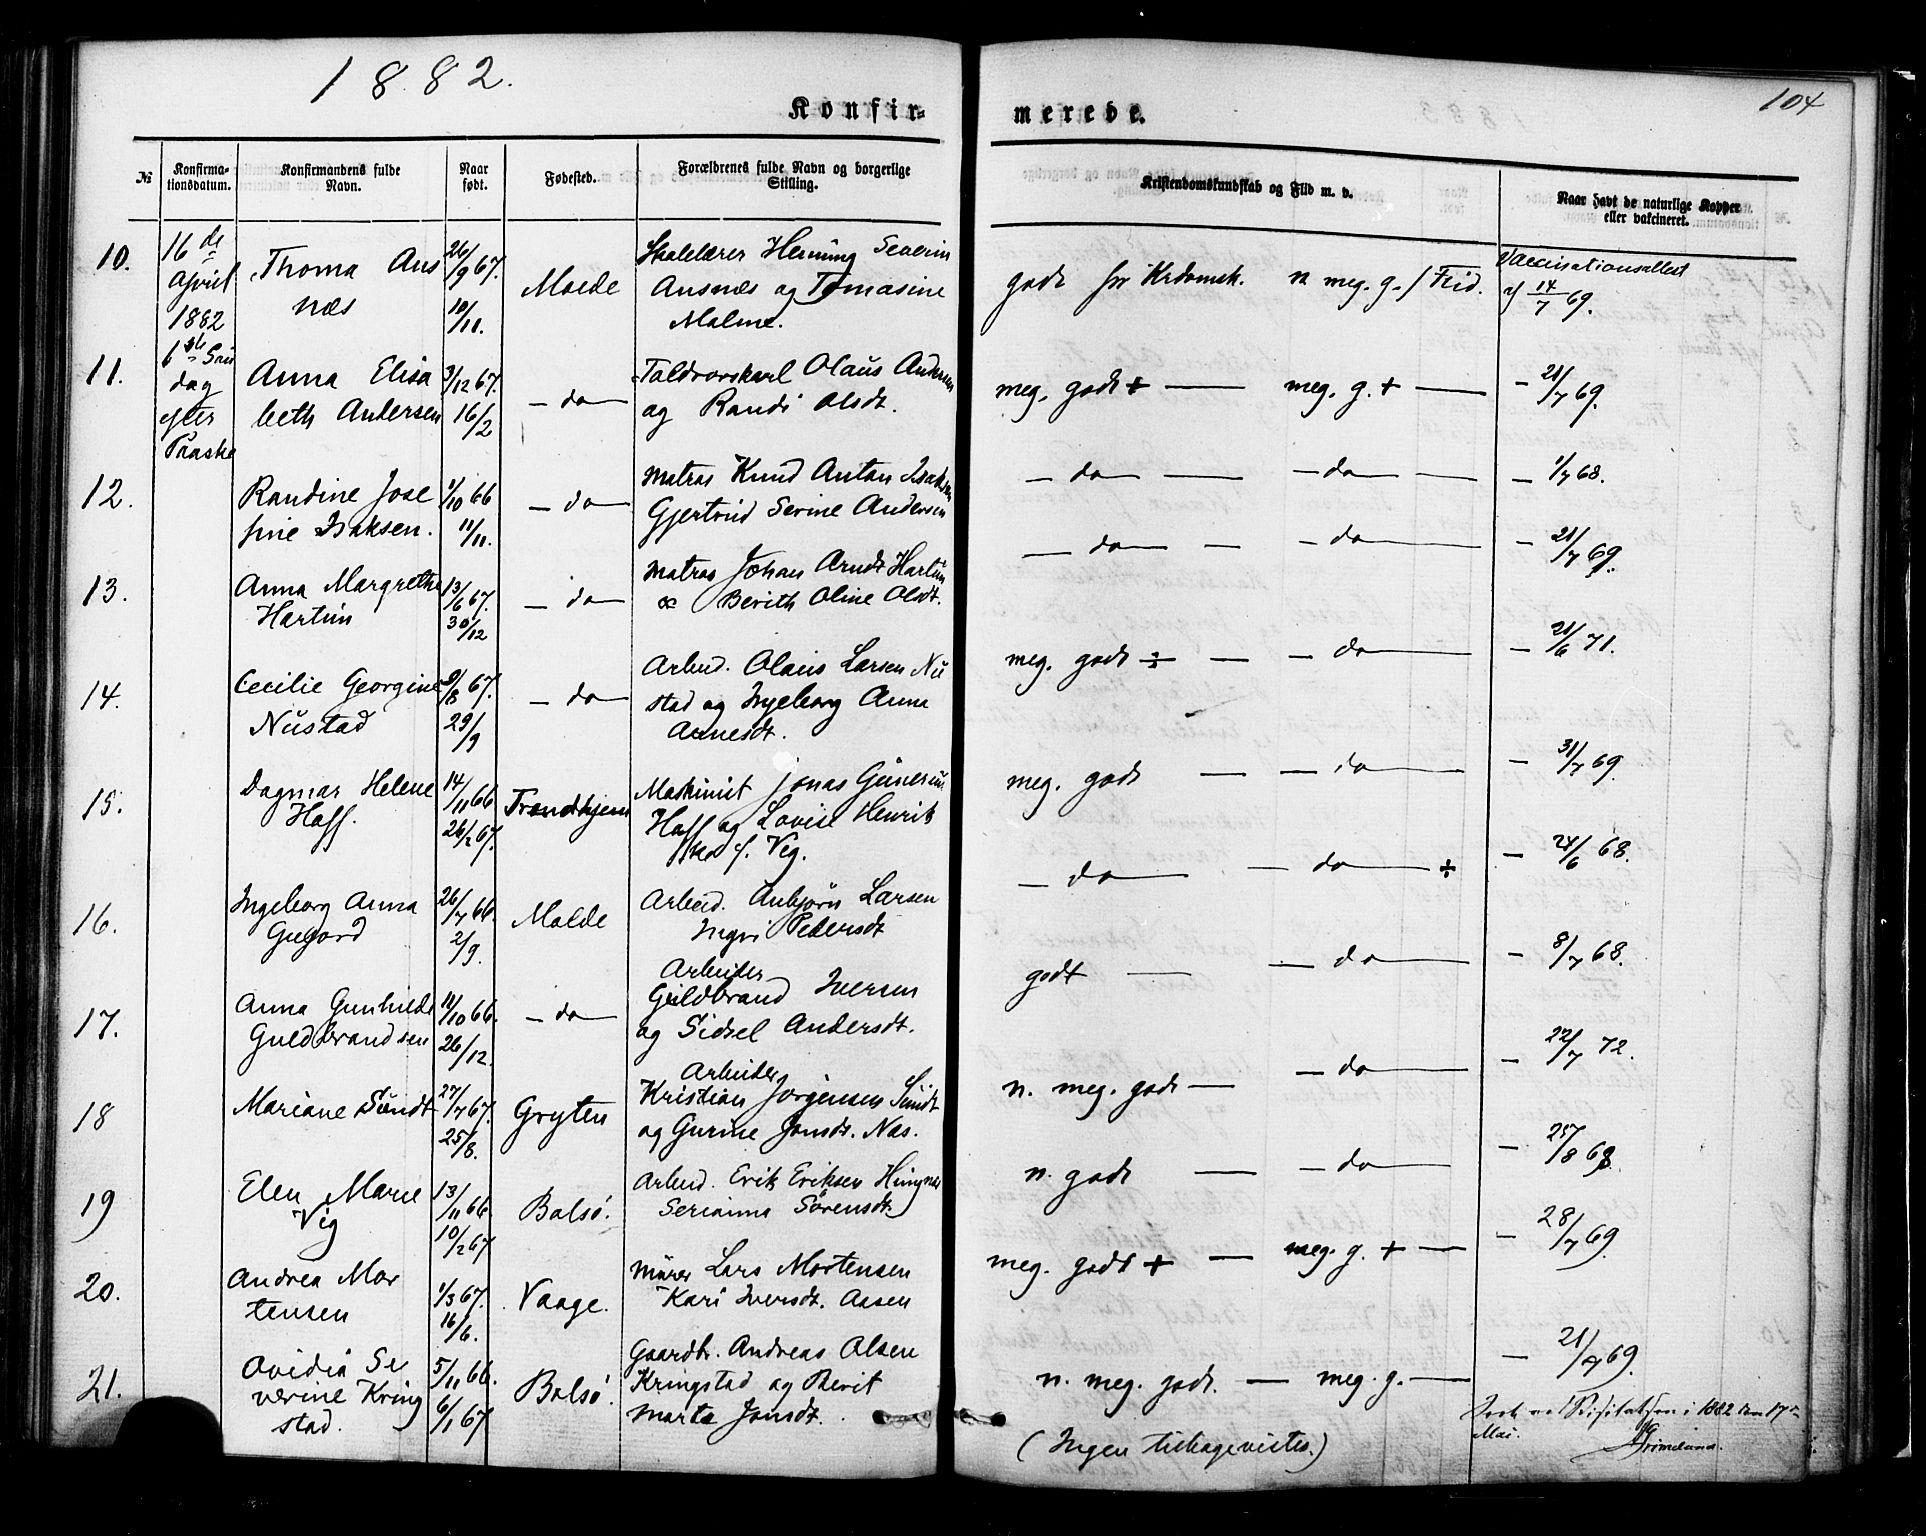 1882.
104
Konfir-
merede.
№
Konfirma-
tionsdatum.
Konfirmandens fulde
Navn.
Naar
født.
Fødested.
Forældrenes fulde Navn og borgerlige
Stilling.
Kristendomskundskab og Flid m. v.
Naar havt de naturlige Kopper
eller vakcineret.
16de
April
1882
Søn
dag
efter
Paaske
10. Thoma Aus
næs
26/9 67.
10/11.
Molde
Skolelærer Henning Severin
Ausnæs og Tomasine
Malme.
godt for Krdomsk. n. meg. g. f Flid.
Vaccinationsattest
af 14/7 69.
11. Anna Elisa
beth Andersen
3/12 67.
16/2
— do —
Toldrorskarl Olaus Andersen
og Randi Olsdt.
meg. godt + — meg. g. + —
— 21/7 69.
12. Randine Jose
fine Isaksen.
1/10 66
11/11.
— do —
Matros Knud Anton Isaksen
Gjertrud Serine Andersen
— do — — do —
— 1/7 68.
13. Anna Margrethe
Hartun
13/6 67.
30/12
— do —
Matros Johan Arndt Hartun
& Berith Oline Olsdt.
— do — — do —
— 21/7 69.
14. Cecilie Georgine
Nustad
2/8 67.
29/9
— do —
Arbeid. Olaus Larsen Nu
stad og Ingeborg Anna
Arnesdt.
meg. godt ÷ — — do —
— 21/6 71.
15. Dagmar Helene
Hoff.
14/11 66
26/2 67.
Trondhjem
Maskinist Jonas Gunerius
Hoff og Lovise Henrik
ka f. Vig.
meg. godt — — do —
— 31/7 69.
16. Ingeborg Anna
26/7 66.
2/9.
Molde
Arbeid. Anbjørn Larsen
Ingri Pedersdt
— do — — do — ÷
— 24/6 68.
17. Anna Gunhilde
Guldbrandsen
11/10 66.
26/12.
— do —
Arbeider
Guldbrand Iversen
og Sidsel Andersdt.
godt — — do —
— 8/7 68.
18 Mariane Sundt
27/7 67.
25/8.
Gryten
Arbeider
Kristian Jørgensen Sundt
og Gurine Jonsdt. Næs.
n. meg. godt — — do —
— 22/7 72.
19 Elen Marie
Vig
13/11 66.
10/2 67
Bolsø.
Arbeid. Erik Eriksen
Serianna Sørensdt.
n. godt — — do —
— 25/8 68.
20. Andrea Mor
tensen
1/3 67.
16/6.
Vaage.
Murer Lars Mortensen
Kari Iversdt. Aasen
meg. godt + — meg. g. + —
— 28/7 69.
21. Ovidia Se
verine Kring
stad.
5/11 66.
6/1 67
Bolsø.
Gaardbr. Andreas Olsen
Kringstad og Berit
Marta Jonsdt.
n. meg. godt. — meg. g. —
— 21/7 69.
(Ingen tilbageviste.)
ved Visitatsen i 1882 den 17de
Mai.
Grimelund.